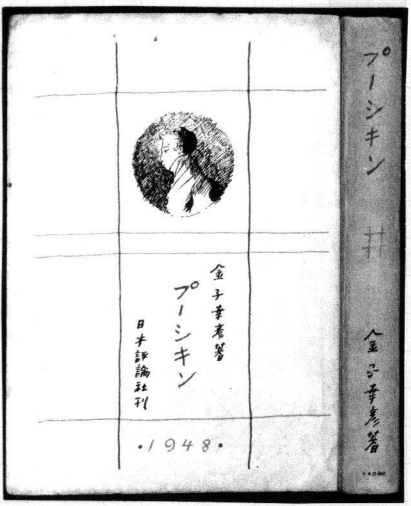 金子幸彦著
プーシキン
日本評論社刊
・1948・
プーシキン
金子幸彦著